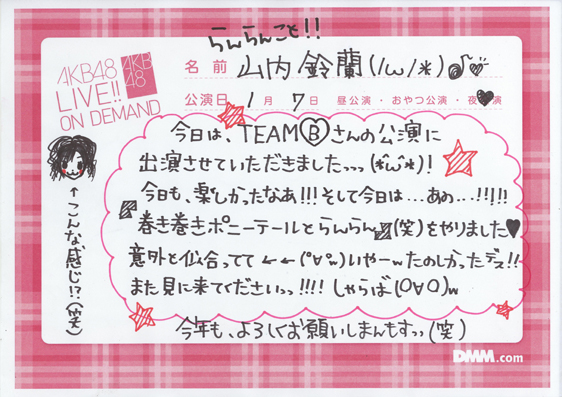 らんらんこと!!
AKB48
LIVE!!
ON DEMAND
AKB
48
名前 山内鈴蘭(/ω/*)♪♡
公演日 1月7日 昼公演・おやつ公演・夜♥演
今日は、TEAM Ⓑさんの公演に
出演させていただきましたっっっ(*´ω`*)!
今日も、楽しかったなあ!!!そして今日は…あの…!!!!!
巻き巻きポニーテールとらんらん(笑)をやりました♥
意外と似合ってて←←(°∀°w)いやーwたのしかったデス!!
また見に来てくださいっ!!!!しゃらば(O∀O)w
今年も、よろしくお願いしまんもすっっ(笑)
↑こんな感じ!?(笑)
DMM.com